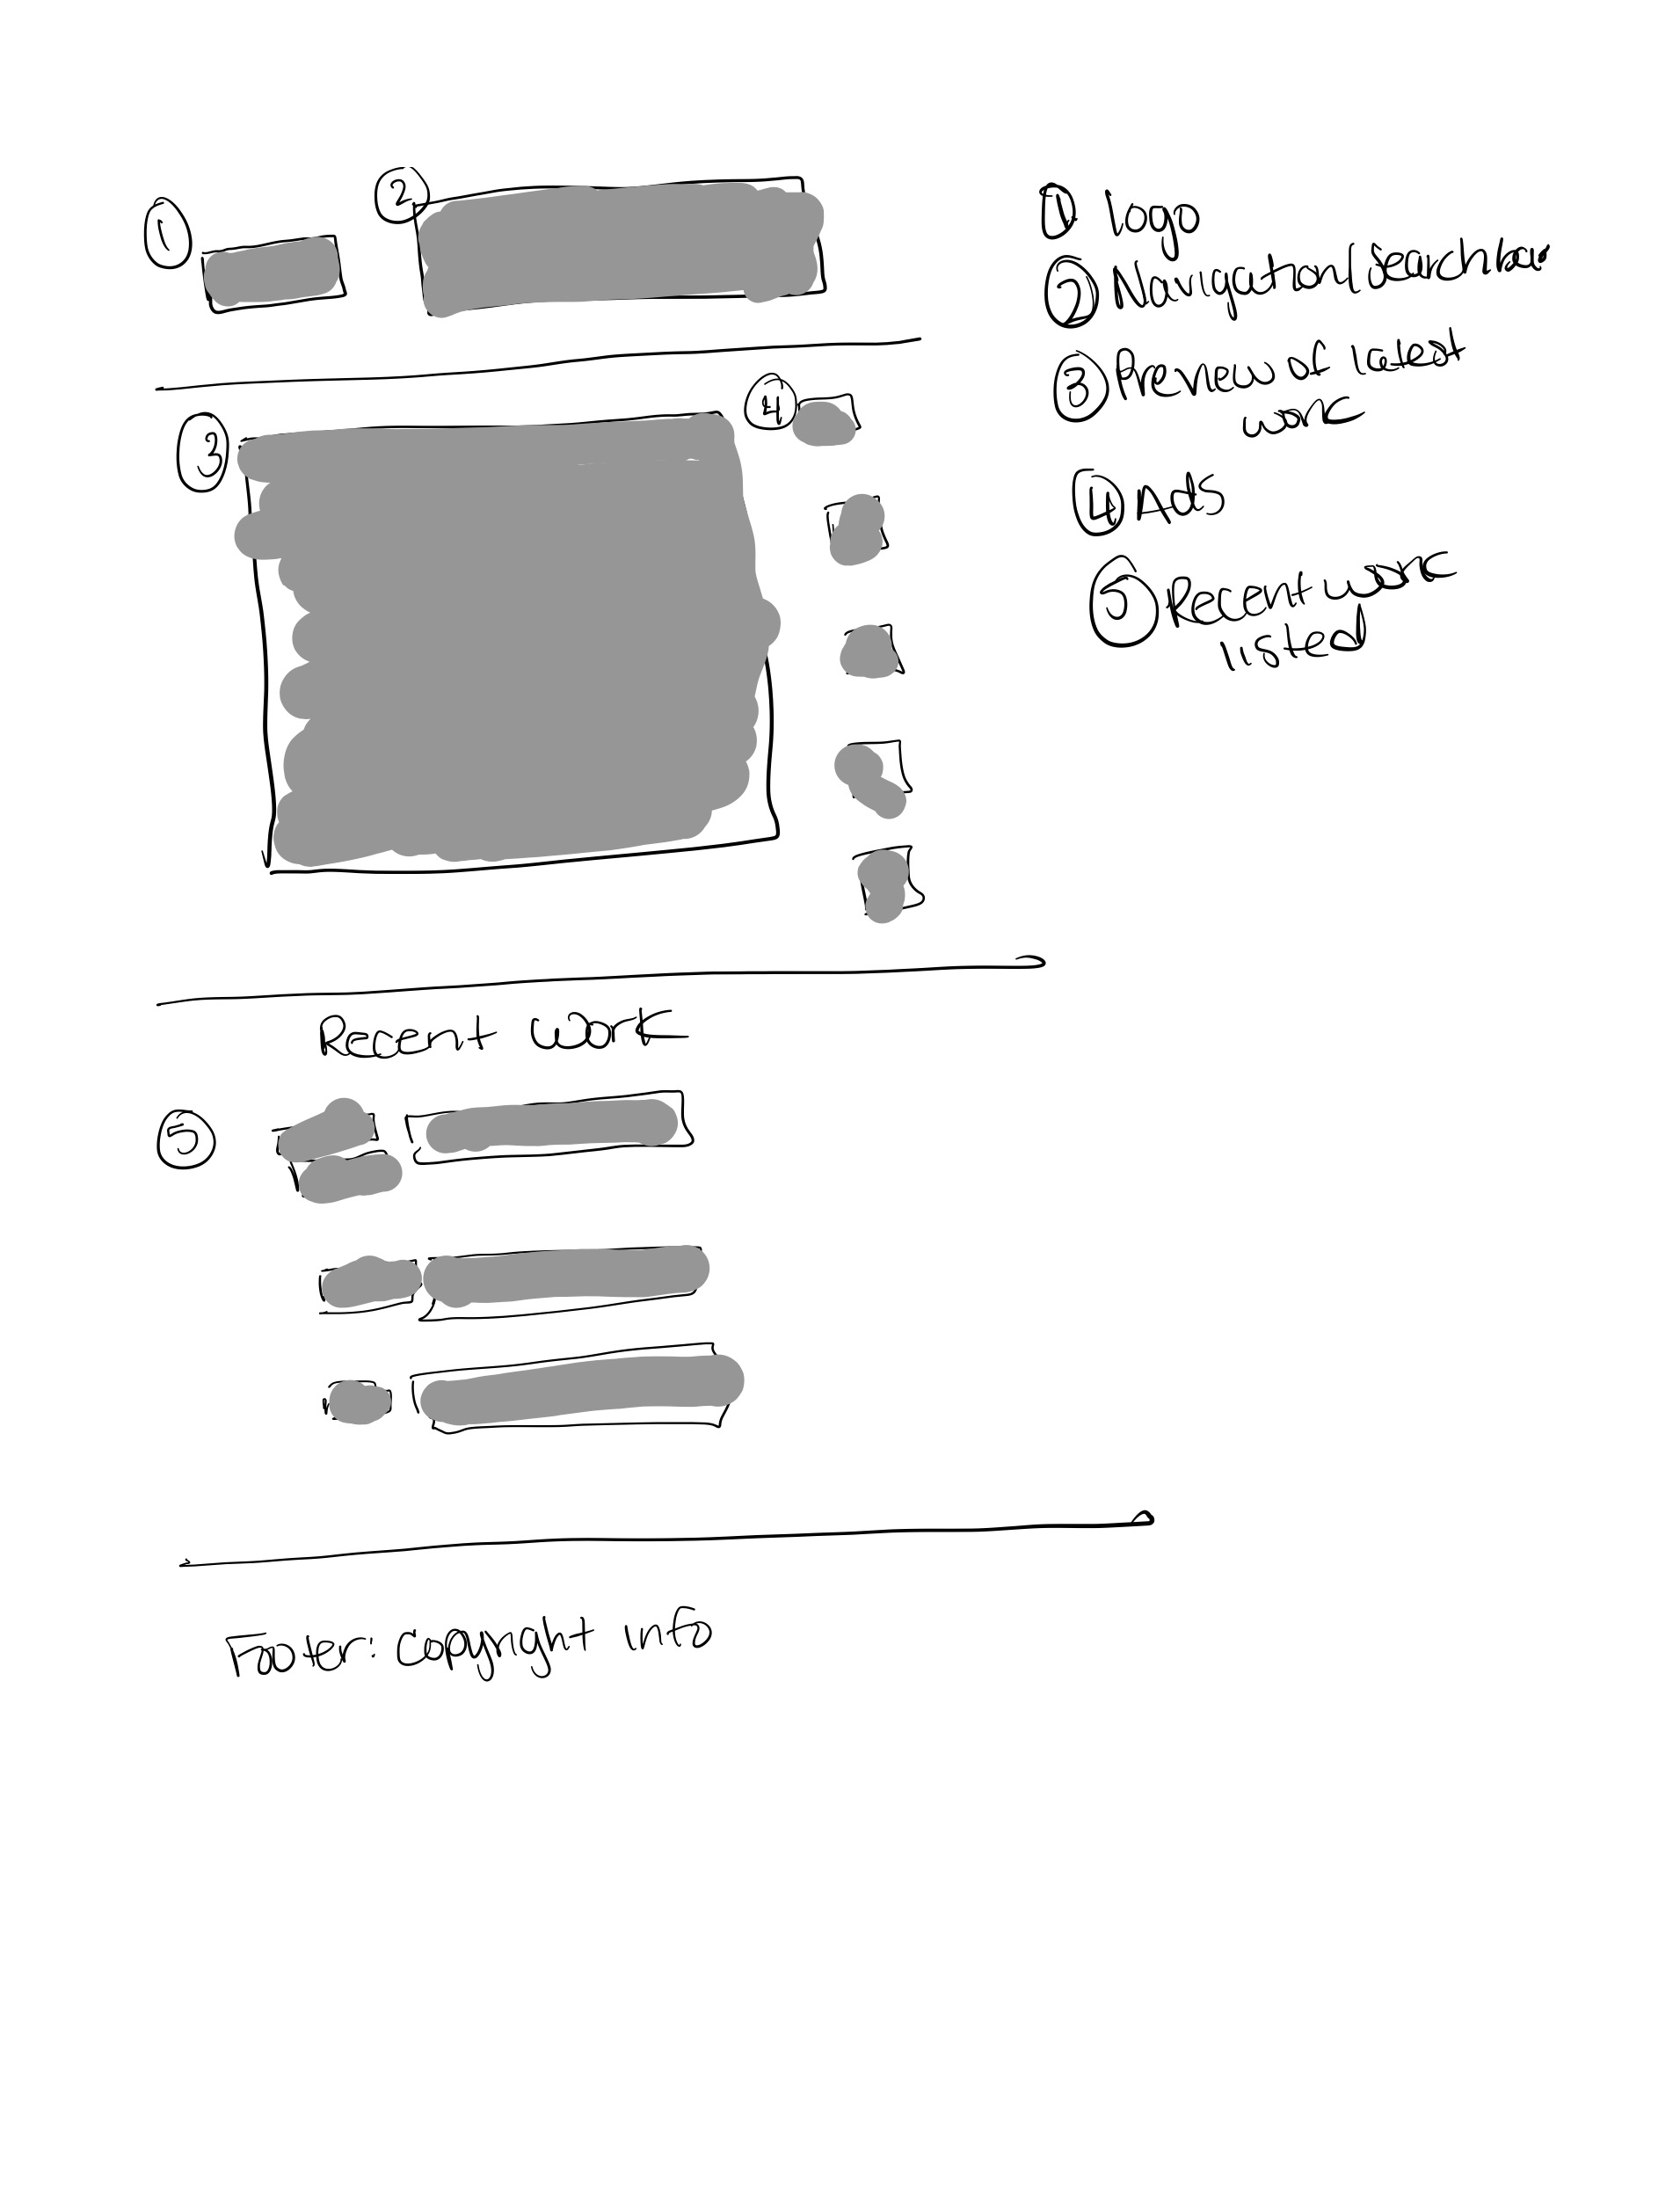 1
2
3
4
Recent work
5
Footer: copyright info
① logo
② Navigation/search bar
③ Preview of latest
work
④ Ads
⑤ Recent work
listed